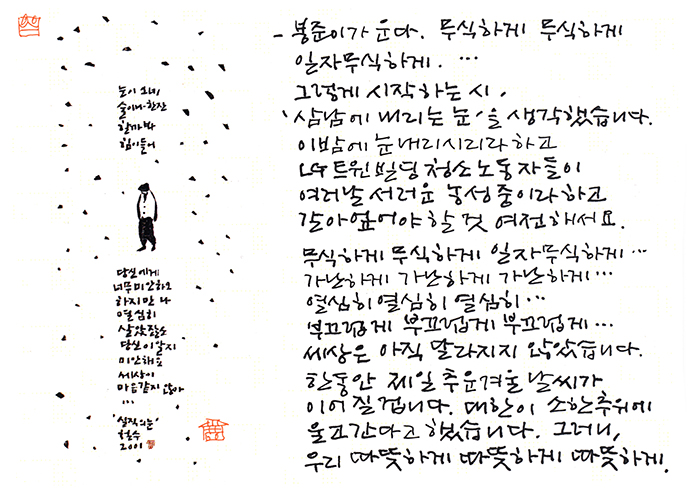 눈이 오네,
술이나 한잔
할까 봐
힘이 들어
당신에게
너무 미안하오
하지만 나
열심히
살았잖소
당신이 알지
미안해요
세상이
마음같지 않아
...
'실직의 눈'
철수
2001
- 봉준이가 운다. 무식하게 무식하게
일자무식하게. ...
그렇게 시작하는 시,
'삼남에 내리는 눈'을 생각했습니다.
이 밤에 눈 내리시리라 하고
LG트윈빌딩 청소노동자들이
여러날 서러운 농성중이라 하고
갈아엎어야 할 것 여전해서요.
무식하게 무식하게 일자무식하게 ...
가난하게 가난하게 가난하게 ...
열심히 열심히 열심히 ...
부끄럽게 부끄럽게 부끄럽게 ...
세상은 아직 달라지지 않았습니다.
한동안 제일 추운 겨울 날씨가
이어질 겁니다. 대한이 소한 추위에
울고 간다고 했습니다. 그러니,
우리 따뜻하게 따뜻하게 따뜻하게.